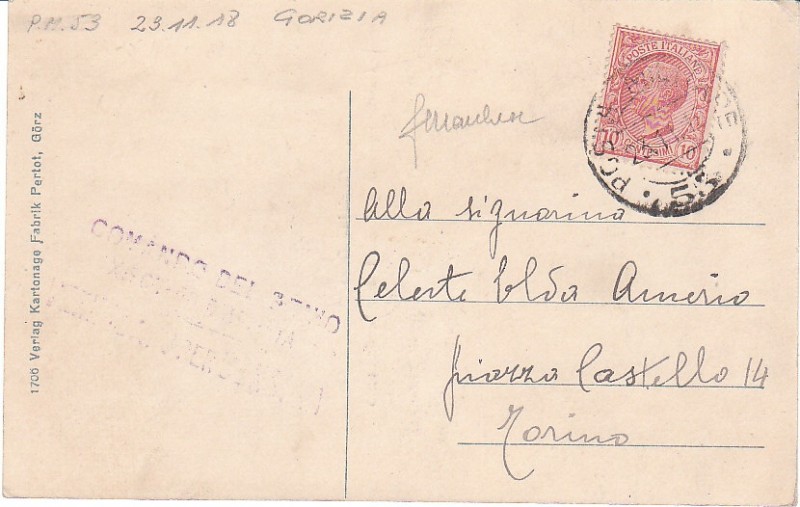 P.M. 53 23.11.18 GORIZIA
POSTE ITALIANE
10 10
POSTA
53
Alla signorina
Celeste Elda Amerio
piazza Castello 14
Torino
COMANDO DEL GENIO
1706 Verlag Kartonage Fabrik Pertot, Görz